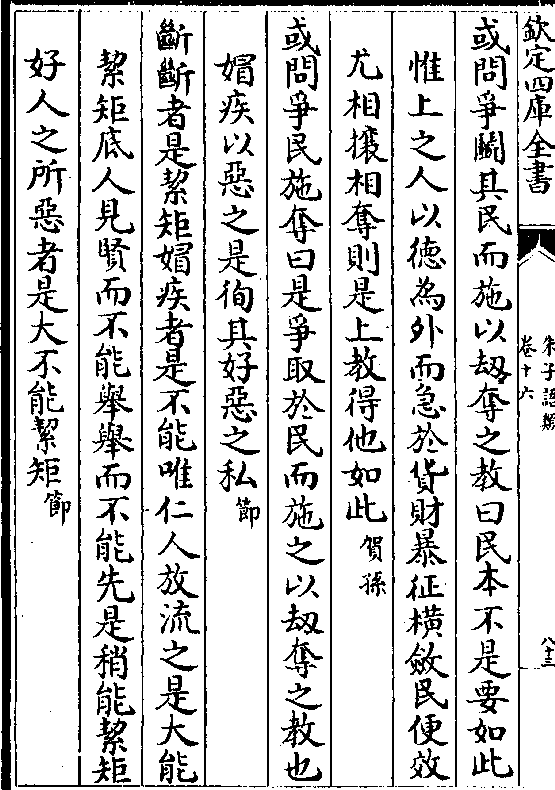 欽定四庫全書
朱子語類
卷十六
八十三
或問爭鬭其民而施以刼奪之教曰民本不是要如此
惟上之人以德為外而急於貨財暴征橫斂民便效
尤相攘相奪則是上教得他如此賀孫
或問爭民施奪曰是爭取於民而施之以刼奪之教也
媢疾以惡之是徇其好惡之私節
斷斷者是絜矩媢疾者是不能唯仁人放流之是大能
絜矩底人見賢而不能舉舉而不能先是稍能絜矩
好人之所惡者是大不能絜矩節